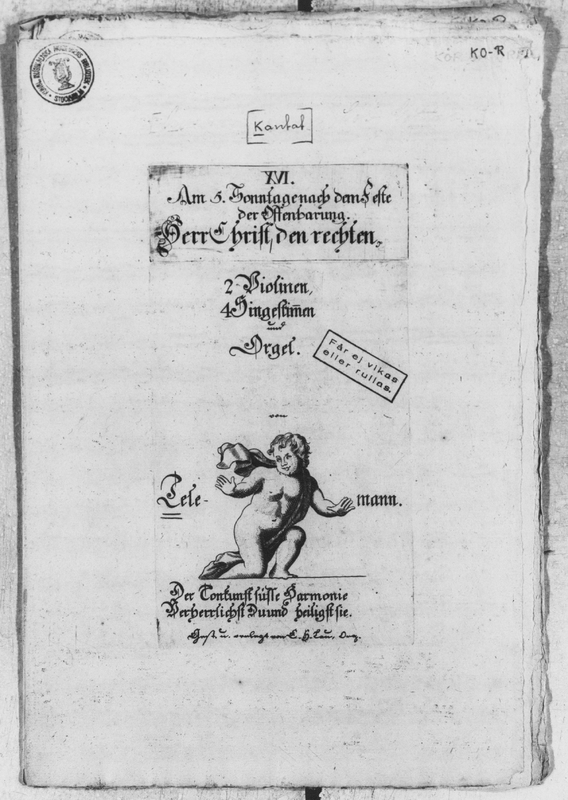 KO-R
Kantat
XVI.
Am 5. Sonntage nach dem Feste
der Offenbarung.
Herr Christ, den rechten,
2 Violinen,
4 Singestim̅en
und
Orgel.
Får ej vikas
eller rullas.
von
Tele-
mann.
Der Tonkunst süsse Harmonie
Verherrlichst Du und heiligst sie.
Gest. u. verlegt von C. H. Lau, Org.